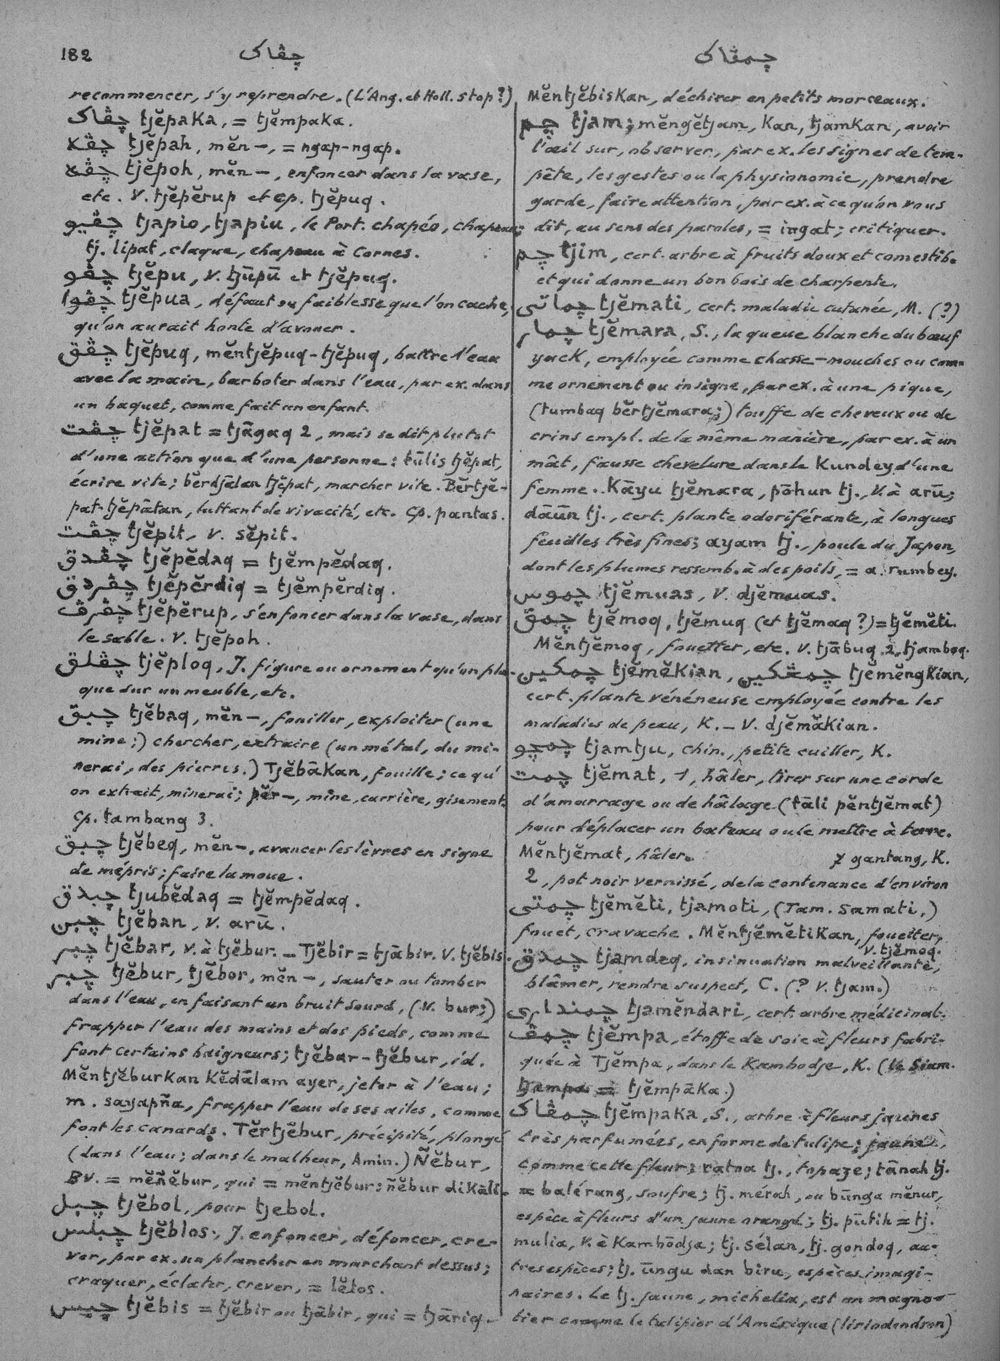 182 چڤاک چمڤاک
recommencer, s'y reprendre. (L'Ang. et Holl. stop?)
چڤاک tjĕpaka, = tjĕmpaka.
چڤه tjĕpah, mĕn-, = ngap-ngap.
چڤه tjĕpoh, mĕn-, enfoncer dans la vase,
etc. V. tjĕpĕrup et cp. tjĕpuq.
چڤيو tjapio, tjapiu, le Port. chapéo, chapeau;
tj. lipat, claque, chapeau à cornes.
چڤو tjĕpu, V. tjūpū et tjĕpuq.
چڤوا tjĕpua, défaut ou faiblesse que l'on cache,
qu'on aurait honte d'avouer.
چڤق tjĕpuq, mĕntjĕpuq-tjĕpuq, battre l'eau
avec la main, barboter dans l'eau, par ex. dans
un baquet, comme fait un enfant.
چڤت tjĕpat = tjāgaq 2, mais se dit plutôt
d'une action que d'une personne: tūlis tjĕpat,
écrire vite; bĕrdjālan tjĕpat, marcher vite. Bĕrtjĕ-
pat-tjĕpātan, luttant de vivacité, etc. Cp. pantas.
چڤت tjĕpit, V. sĕpit.
چڤدق tjĕpĕdaq = tjĕmpĕdaq.
چڤردق tjĕpĕrdiq = tjĕmpĕrdiq.
چڤرڤ tjĕpĕrup, s'enfoncer dans la vase, dans
le sable. V. tjĕpoh.
چڤلق tjĕploq, J. figure ou ornement qu'on pla-
que sur un meuble, etc.
چبق tjĕbaq, mĕn-, fouiller, exploiter (une
mine;) chercher, extraire (un métal, du mi-
nerai, des pierres.) Tjĕbākan, fouille; ce qu'
on extrait, minerai; pĕr-, mine, carrière, gisement.
Cp. tambang 3.
چبق tjĕbeq, mĕn-, avancer les lèvres en signe
de mépris; faire la moue.
چبدق tjubĕdaq = tjĕmpĕdaq.
چبن tjĕban, V. arū.
چبر tjĕbar, V. à tjĕbur. - Tjĕbir = tjābir. V. tjĕbis.
چبر tjĕbur, tjĕbor, mĕn-, sauter ou tomber
dans l'eau, en faisant un bruit sourd, (V. bur;)
frapper l'eau des mains et des pieds, comme
font certains baigneurs; tjĕbar-tjĕbur, id.
Mĕntjĕburkan kĕdālam ayer, jeter à l'eau;
m. sayapña, frapper l'eau de ses ailes, comme
font les canards. Tĕrtjĕbur, précipité, plongé
(dans l'eau; dans le malheur, Amin.) Ñĕbur,
BV. = mĕñĕbur, qui = mĕntjĕbur: ñĕbur dikāli.
چبل tjĕbol, pour tjebol.
چبلس tjĕblos, J. enfoncer, défoncer, cre-
ver, par ex. un plancher en marchant dessus;
craquer, éclater, crever, = lĕtos.
چبس tjĕbis = tjĕbir ou tjābir, qui = tjāriq.
Mĕntjĕbiskan, déchirer en petits morceaux.
چم tjam; mĕngĕtjam, kan, tjamkan, avoir
l'œil sur, observer, par ex. les signes de tem-
pête, les gestes ou la physionomie, prendre
garde, faire attention, par ex. à ce qu'on vous
dit, au sens des paroles, = ingat; critiquer.
چم tjim, cert. arbre à fruits doux et comestib.
et qui donne un bon bois de charpente.
چماتي tjĕmati, cert. maladie cutanée, M. (?)
چمار tjĕmara, S., la queue blanche du bœuf
yack, employée comme chasse-mouches ou com-
me ornement ou insigne, par ex. à une pique,
(tumbaq bĕrtjĕmara;) touffe de cheveux ou de
crins empl. de la même manière, par ex. à un
mât, fausse chevelure dans le kundey d'une
femme. Kāyu tjĕmara, pōhun tj., V. à arū;
dāūn tj., cert. plante odoriférante, à longues
feuilles très fines; ayam tj., poule du Japon,
dont les plumes ressemb. à des poils, = a. rumbey.
چموس tjĕmuas, V. djĕmuas.
چمق tjĕmoq, tjĕmuq (et tjĕmaq?) = tjĕmĕti.
Mĕntjĕmoq, fouetter, etc. V. tjābuq 2, tjamboq.
چمکين tjĕmĕkian, چمڠکين tjĕmĕngkian,
cert. plante vénéneuse employée contre les
maladies de peau, K. - V. djĕmākian.
چمچو tjamtju, chin., petite cuiller, K.
چمت tjĕmat, 1, hâler, tirer sur une corde
d'amarrage ou de hâlage (tāli pĕntjĕmat)
pour déplacer un bateau ou le mettre à terre.
Mĕntjĕmat, hâler. 7 gantang, K.
2, pot noir vernissé, de la contenance d'environ
چمتي tjĕmĕti, tjamoti, (Tam. Samati,)
fouet, cravache. Mĕntjĕmĕtikan, fouetter,
V. tjĕmoq.
چمدق tjamdeq, insinuation malveillante,
blâmer, rendre suspect, C. (? V. tjam.)
چمنداري tjamĕndari, cert. arbre médicinal.
چمڤ tjĕmpa, étoffe de soie à fleurs fabri-
quée à Tjĕmpa, dans le Kambodje, K. (
tjĕmpāka.)
چمڤاک tjĕmpaka, S., arbre à fleurs jaunes
très parfumées, en forme de tulipe;
comme cette fleur; ratna tj., topaze; tānah tj.
= balérang, soufre; tj. mérah, ou būnga mĕnur,
espèce à fleurs d'un jaune orangé; tj. pūtih = tj.
mulia, V. à Kambōdja; tj. sélan, tj. gondoq, au-
tres espèces; tj. ūngu dan biru, espèces imagi-
naires. Le tj. jaune, michelia, est un magno-
lier comme le tulipier d'Amérique (liriodendron)